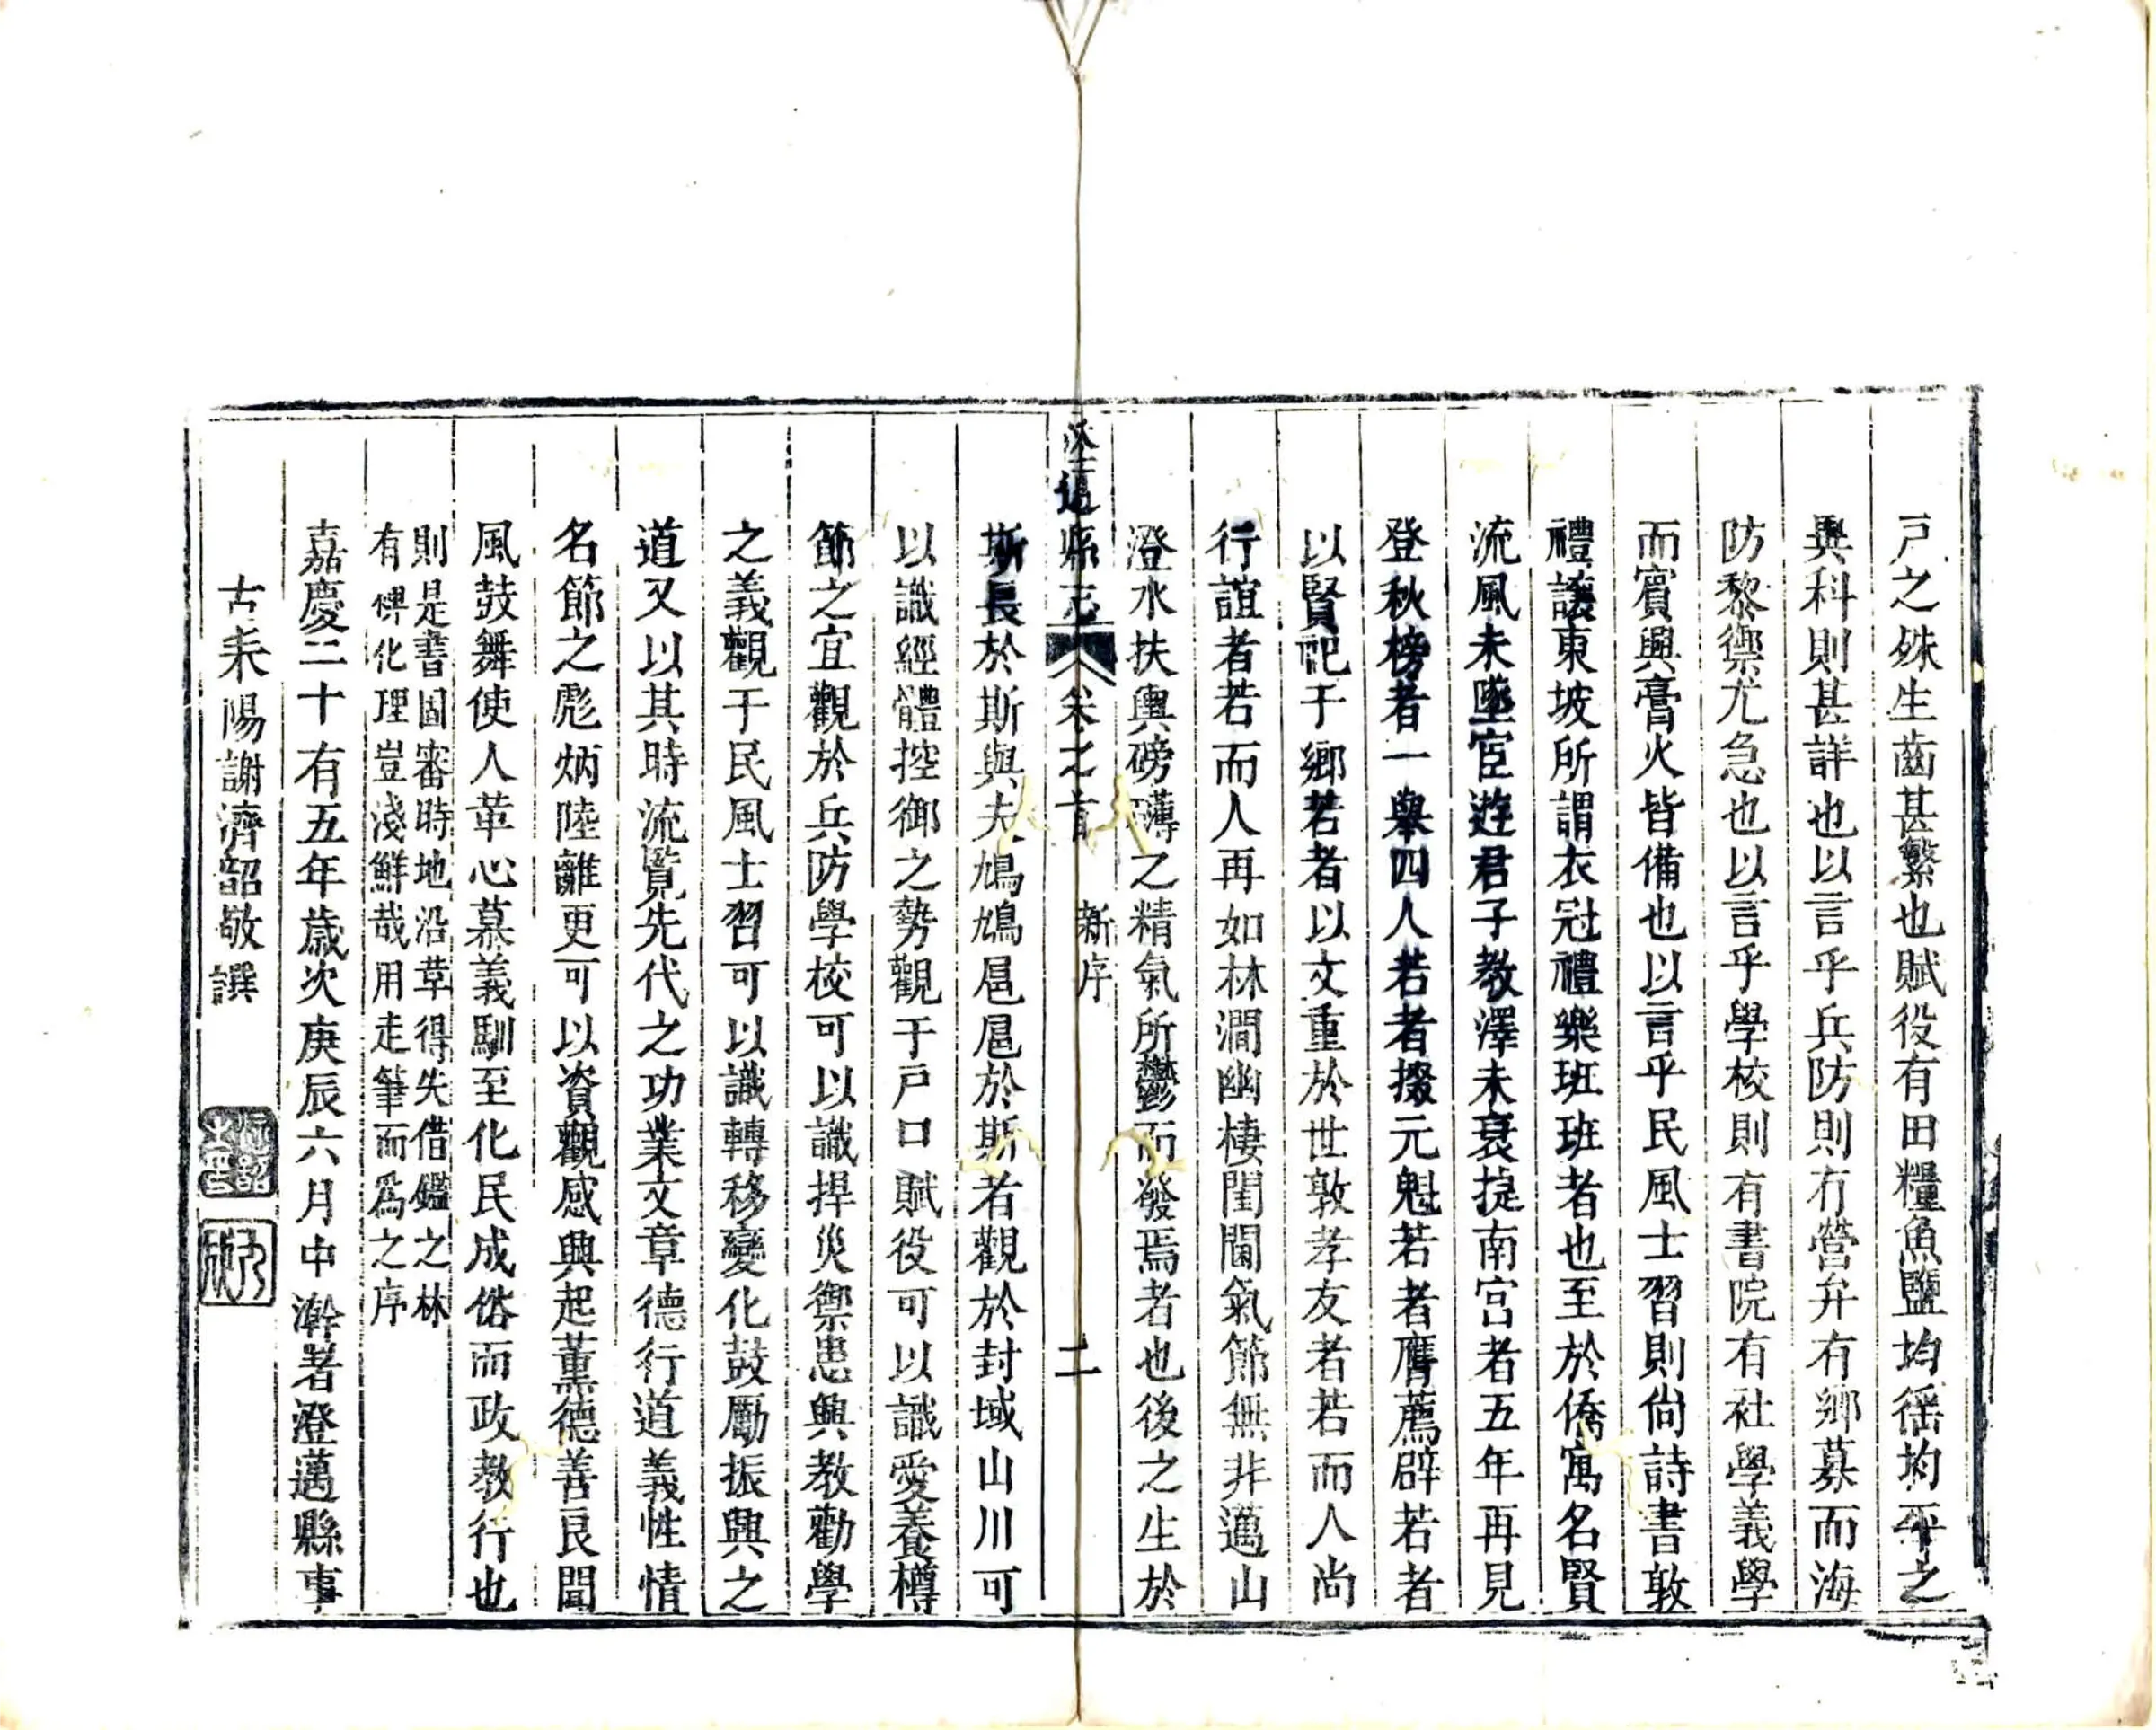 戸之殊生齒甚繁也賦役有田糧魚鹽均徭均平之
與科則甚詳也以言乎兵防則有營弁有鄉募而海
防黎禦尤急也以言乎學校則有書院有社學義學
而賓興膏火皆備也以言乎民風士習則尙詩書敦
禮讓東坡所謂衣冠禮樂班班者也至於僑寓名賢
流風未墜宦遊君子教澤未衰捷南宮者五年再見
登秋榜者一舉四人若者掇元魁若者膺薦辟若者
以賢祀于鄉若者以文重於世敦孝友者若而人尚
行誼者若而人再如林澗幽棲閨閫氣節無非邁山
澄水扶輿磅礴之精氣所鬱而發焉者也後之生於
澄邁縣志 卷之首 新序 二
斯長於斯與夫鳩鳩扈扈於斯者觀於封域山川可
以識經體控御之勢觀于戸口賦役可以識愛養樽
節之宜觀於兵防學校可以識捍災禦患興教勸學
之義觀于民風士習可以識轉移變化鼓勵振興之
道又以其時流覽先代之功業文章德行道義性情
名節之彪炳陸離更可以資觀感興起薰德善良聞
風鼓舞使人革心慕義馴至化民成俗而政教行也
則是書固審時地沿革得失借鑑之林
有裨化理豈淺鮮哉用走筆而爲之序
嘉慶二十有五年歲次庚辰六月中澣署澄邁縣事
古耒陽謝濟韶敬譔